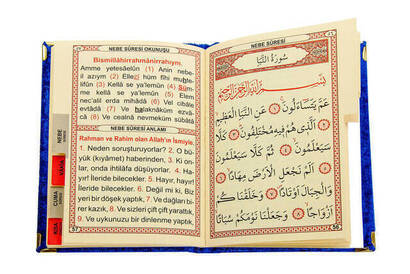 NEBE SÛRESİ OKUNUŞU
Bismillâhirrahmânirrahıym.
Amme yetesâelûn (1) Anin nebe-
il azıym (2) Ellezi hüm fîhi muhte-
(3) Kellâ se ya'lemûn (4) Süm-
me kellâ se ya'lemûn (5) Elem
nec'alil erda mihâdâ (6) Vel cibâle
evtâdâ (7) Ve halaknâküm ezvâ-
câ (8) Ve cealnâ nevmeküm sübâtâ
NEBE SÛRESİ ANLAMI
Rahman ve Rahim olan Allah'ın İsmiyle.
1. Neden soruşturuyorlar? 2. O bü-
yük (kıyâmet) haberinden, 3. Ki on-
lar, onda ihtilâfa düşüyorlar. 4. Hayır,
ileride bilecekler. 5. Hayır, hayır!
İleride bilecekler. 6. Değil mi ki, Biz
yeri bir döşek yaptık. 7. Ve dağları
birer kazık, 8. Ve sizleri çift çift yarattık.
9. Ve uykunuzu bir dinlenme yaptık.
57
NEBE
YÂSİN
CUMA
NEBE SÛRESİ
سُورَةُ النَّبَأِ
بِسْمِ اللهِ الرَّحْمٰنِ الرَّحِيمِ
عَمَّ يَتَسَاءَلُونَ ﴿١﴾ عَنِ النَّبَإِ الْعَظِيمِ ﴿٢﴾
الَّذِى هُمْ فِيهِ مُخْتَلِفُونَ ﴿٣﴾ كَلَّا
سَيَعْلَمُونَ ﴿٤﴾ ثُمَّ كَلَّا سَيَعْلَمُونَ ﴿٥﴾
اَلَمْ نَجْعَلِ الْاَرْضَ مِهَادًا ﴿٦﴾
وَالْجِبَالَ اَوْتَادًا ﴿٧﴾ وَخَلَقْنَاكُمْ
اَزْوَاجًا ﴿٨﴾ وَجَعَلْنَا نَوْمَكُمْ سُبَاتًا ﴿٩﴾